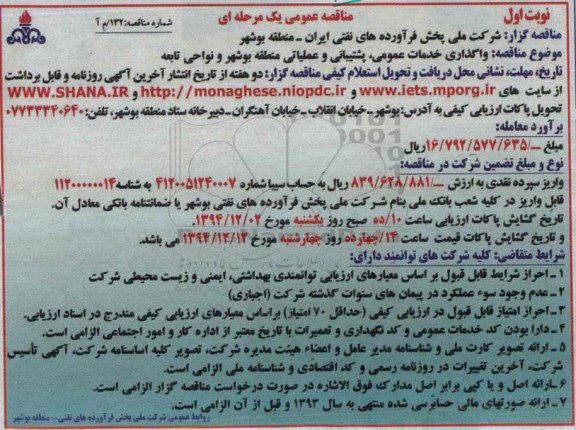 نوبت اول
مناقصه عمومی یک مرحله ای
شماره مناقصه: ۱۳۲/م آ
مناقصه گزار: شرکت ملی پخش فرآورده های نفتی ایران ـ منطقه بوشهر
موضوع مناقصه: واگذاری خدمات عمومی، پشتیبانی و عملیاتی منطقه بوشهر و نواحی تابعه
تاریخ، مهلت، نشانی محل دریافت و تحویل استعلام کیفی مناقصه گزار: دو هفته از تاریخ انتشار آخرین آگهی روزنامه و قابل برداشت
از سایت های www.iets.mporg.ir و http://monaghese.niopdc.ir و WWW.SHANA.IR
تحویل پاکات ارزیابی کیفی به آدرس: بوشهر ـ خیابان انقلاب ـ خیابان آهنگران ـ دبیرخانه ستاد منطقه بوشهر، تلفن: ۰۷۷۳۳۳۴۰۶۴۰
برآورد معامله:
مبلغ ــ/۱۶/۷۹۲/۵۷۷/۶۳۵ریال
نوع و مبلغ تضمین شرکت در مناقصه:
واریز سپرده نقدی به ارزش ــ/۸۳۹/۶۲۸/۸۸۱ ریال به حساب سیبا شماره ۴۱۲۰۰۵۱۲۴۰۰۰۷ به شناسه ۱۱۲۰۰۰۰۰۱۴
قابل واریز در کلیه شعب بانک ملی بنام شرکت ملی پخش فرآورده های نفتی بوشهر یا ضمانتنامه بانکی معادل آن.
تاریخ گشایش پاکات ارزیابی ساعت ۱۰/ده صبح روز یکشنبه مورخ ۱۳۹۴/۱۲/۰۲.
و تاریخ گشایش پاکات قیمت ساعت ۱۴/چهارده روز چهارشنبه مورخ ۱۳۹۴/۱۲/۱۲ می باشد.
شرایط متقاضی: کلیه شرکت های توانمند دارای:
۱ ـ احراز شرایط قابل قبول بر اساس معیارهای ارزیابی توانمندی بهداشتی، ایمنی و زیست محیطی شرکت
۲ ـ عدم وجود سوء عملکرد در پیمان های سنوات گذشته شرکت (اجباری)
۳ ـ احراز امتیاز قابل قبول در ارزیابی کیفی (حداقل ۷۰ امتیاز) براساس معیارهای ارزیابی کیفی مندرج در اسناد ارزیابی.
۴ ـ دارا بودن کد خدمات عمومی و کد نگهداری و تعمیرات با تاریخ معتبر از اداره کار و امور اجتماعی الزامی است.
۵ ـ ارائه تصویر کارت ملی و شناسنامه مدیر عامل و اعضاء هیئت مدیره شرکت، تصویر کلیه اساسنامه شرکت، آگهی تأسیس
شرکت، آخرین تغییرات در روزنامه رسمی و کد اقتصادی و شناسنامه ملی الزامی است.
۶ ـ ارائه اصل و یا کپی برابر اصل مدارک فوق الاشاره در صورت درخواست مناقصه گزار الزامی است.
۷ ـ ارائه صورتهای مالی حسابرسی شده منتهی به سال ۱۳۹۳ و قبل از آن الزامی است.
روابط عمومی شرکت ملی پخش فرآورده های نفتی- منطقه بوشهر